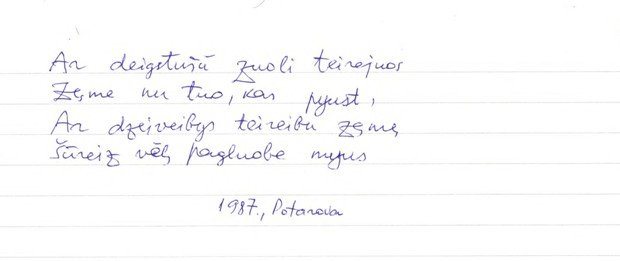 Ar deigstušū zuoli teirejnos
Zeme nu tuo, kas pyust,
Ar dzeiveibys teireibu zeme
Šūreiz vēļ pagluobe myus
1987., Potarova